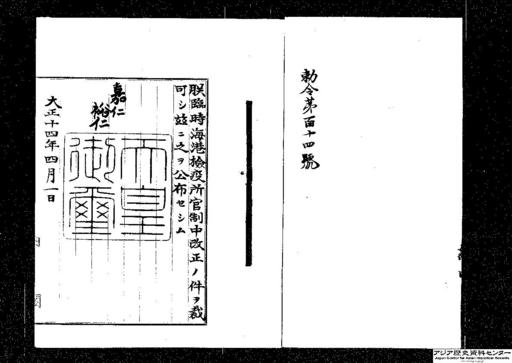 勅令第百十四號
朕臨時海港檢疫所官制中改正ノ件ヲ裁
可シ玆ニ之ヲ公布セシム
嘉仁
裕仁
天皇
御璽
大正十四年四月一日
アジア歴史資料センター
Japan Center for Asian Historical Records